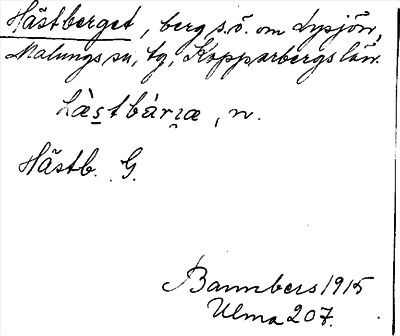 Hästberget, berg s.ö. om Lysjön,
Malungs sn, tg, Kopparbergs län.
Hàstbár, n.
Hästb. G.
Bannbers 1915
Ulma 207.